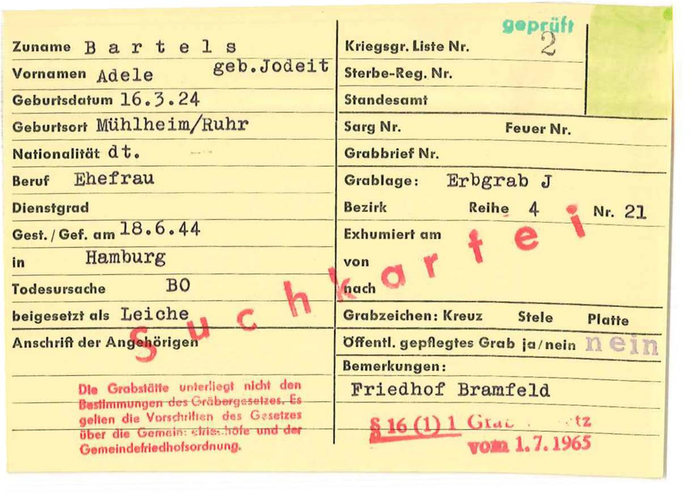 Zuname Bartels
geb.Jodeit
Vornamen Adele
Geburtsdatum 16.3.24
Geburtsort Mühlheim/Ruhr
Nationalität dt.
Beruf Ehefrau
Dienstgrad
Gest./Gef. am 18.6.44
in Hamburg
Todesursache BO
beigesetzt als Leiche
Anschrift der Angehörigen
Die Grabstätte unterliegt nicht den
Bestimmungen des Gräbergesetzes. Es
gelten die Vorschriften des Gesetzes
über die und der
Gemeindefriedhofsordnung.
Suchkartei
geprüft
Kriegsgr. Liste Nr. 2
Sterbe-Reg. Nr.
Standesamt
Sarg Nr. Feuer Nr.
Grabbrief Nr.
Grablage: Erbgrab J
Bezirk Reihe 4 Nr. 21
Exhumiert am
von
nach
Grabzeichen: Kreuz Stele Platte
Öffentl. gepflegtes Grab ja/nein nein
Bemerkungen:
Friedhof Bramfeld
§ 16 (1) 1
vom 1.7.1965